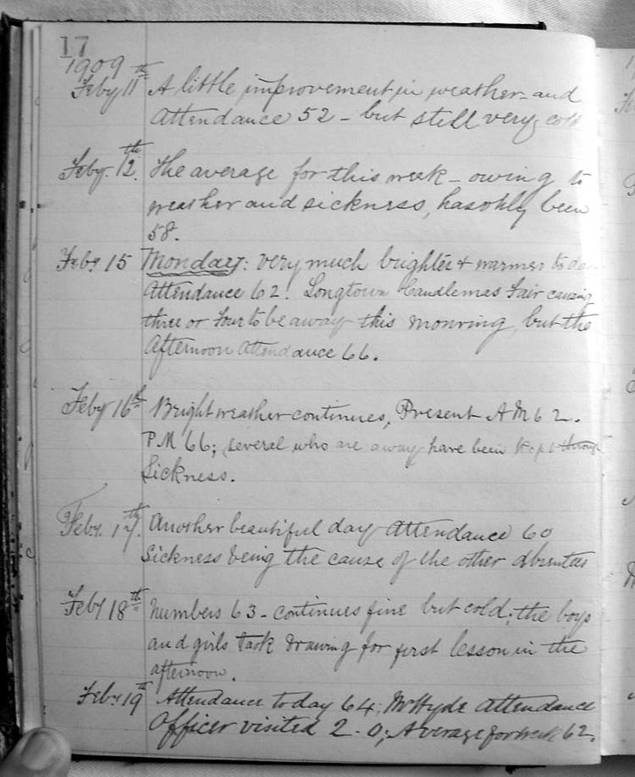 17
1909
Feby 11th A little improvement in weather - and
Attendance 52 - but still very cold
Feby. 12th. The average for this week - owing to
weather and sickness, has only been
58.
Feby 15 Monday: very much brighter & warmer to day
Attendance 62. Longtown Candlemas Fair causing
three or four to be away this morning, but the
Afternoon Attendance 66.
Feby 16th Bright weather continues, Present A M 62.
P.M 66; several who are away have been kept through
Sickness.
Feby. 17th. Another beautiful day Attendance 60
Sickness being the cause of the other absentees
Feby 18th Numbers 63 - continues fine but cold; the boys
and girls took drawing for first lesson in the
afternoon.
Feby 19th Attendance today 64; Mr Hyde Attendance
Officer visited 2.0; Average for week 62.